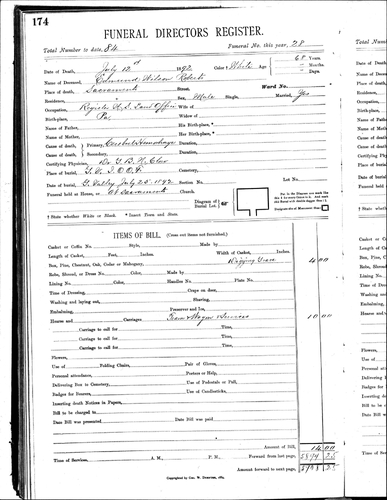 174
FUNERAL DIRECTORS REGISTER.
Total Number to date, 84 Funeral No. this year, 28
Date of Death, July 12th 1892 Color † White Age 68 Years
Months
Days.
Name of Deceased, Edmund Wilson Roberts
Place of death, Sacramento Street, Ward No.
Residence, Sex, Male Single, Married, Yes
Occupation, Register U.S. Land Office Wife of
Birth-place, Pa Widow of
Name of Father, His Birth-place, *
Name of Mother, Her Birth-place, *
Cause of death, Primary, Cerebral Hemorhage Duration,
Cause of death, Secondary, Duration,
Certifying Physician, Dr G.B. H.
Place of burial, G.V. I.O.O.F. Cemetery,
Date of burial, G. Valley July 25 1892 Section No. Lot No.
Funeral held at House, or at Sacramento Church.
Diagram of Burial Lot.
† State whether White or Black. * Insert Town and State.
ITEMS OF BILL. (Cross out items not furnished.)
Casket or Coffin No. Style, Made by
Length of Casket, Feet, Inches. Width of Casket, Inches.
Box, Pine, Chestnut, Oak, Cedar or Mahogany, Digging Grave 4 00
Robe, Shroud, or Dress No. Color, Made by
Lining No. Color, Handles No. Plate No.
Time of Dressing, Crape on door,
Washing and laying out, Shaving,
Embalming, Preserver and Ice,
Hearse and Carriages, Team Wagon Services 10 00
Carriage to call for Time,
Carriage to call for Time,
Carriage to call for Time,
Carriage to call for Time,
Flowers,
Use of Folding Chairs, Pair of Gloves,
Personal attendance, Porters or Help,
Delivering Box to Cemetery, Use of Pedestals or Pall,
Badges for Bearers, Use of Candlesticks,
Inserting death Notices in Papers,
Bill to be charged to
Date Bill was presented Date Bill was paid
Amount of Bill, 14 00
Time of Services, A. M., P. M., Forward from last page,
Amount forward to next page,
Copyrighted by Geo. W.